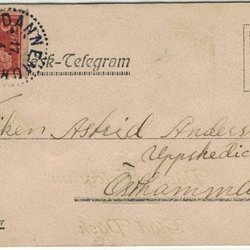 DANNEM
ik-Telegram
iken Astrid Anders
Uppskedic
Östhamma